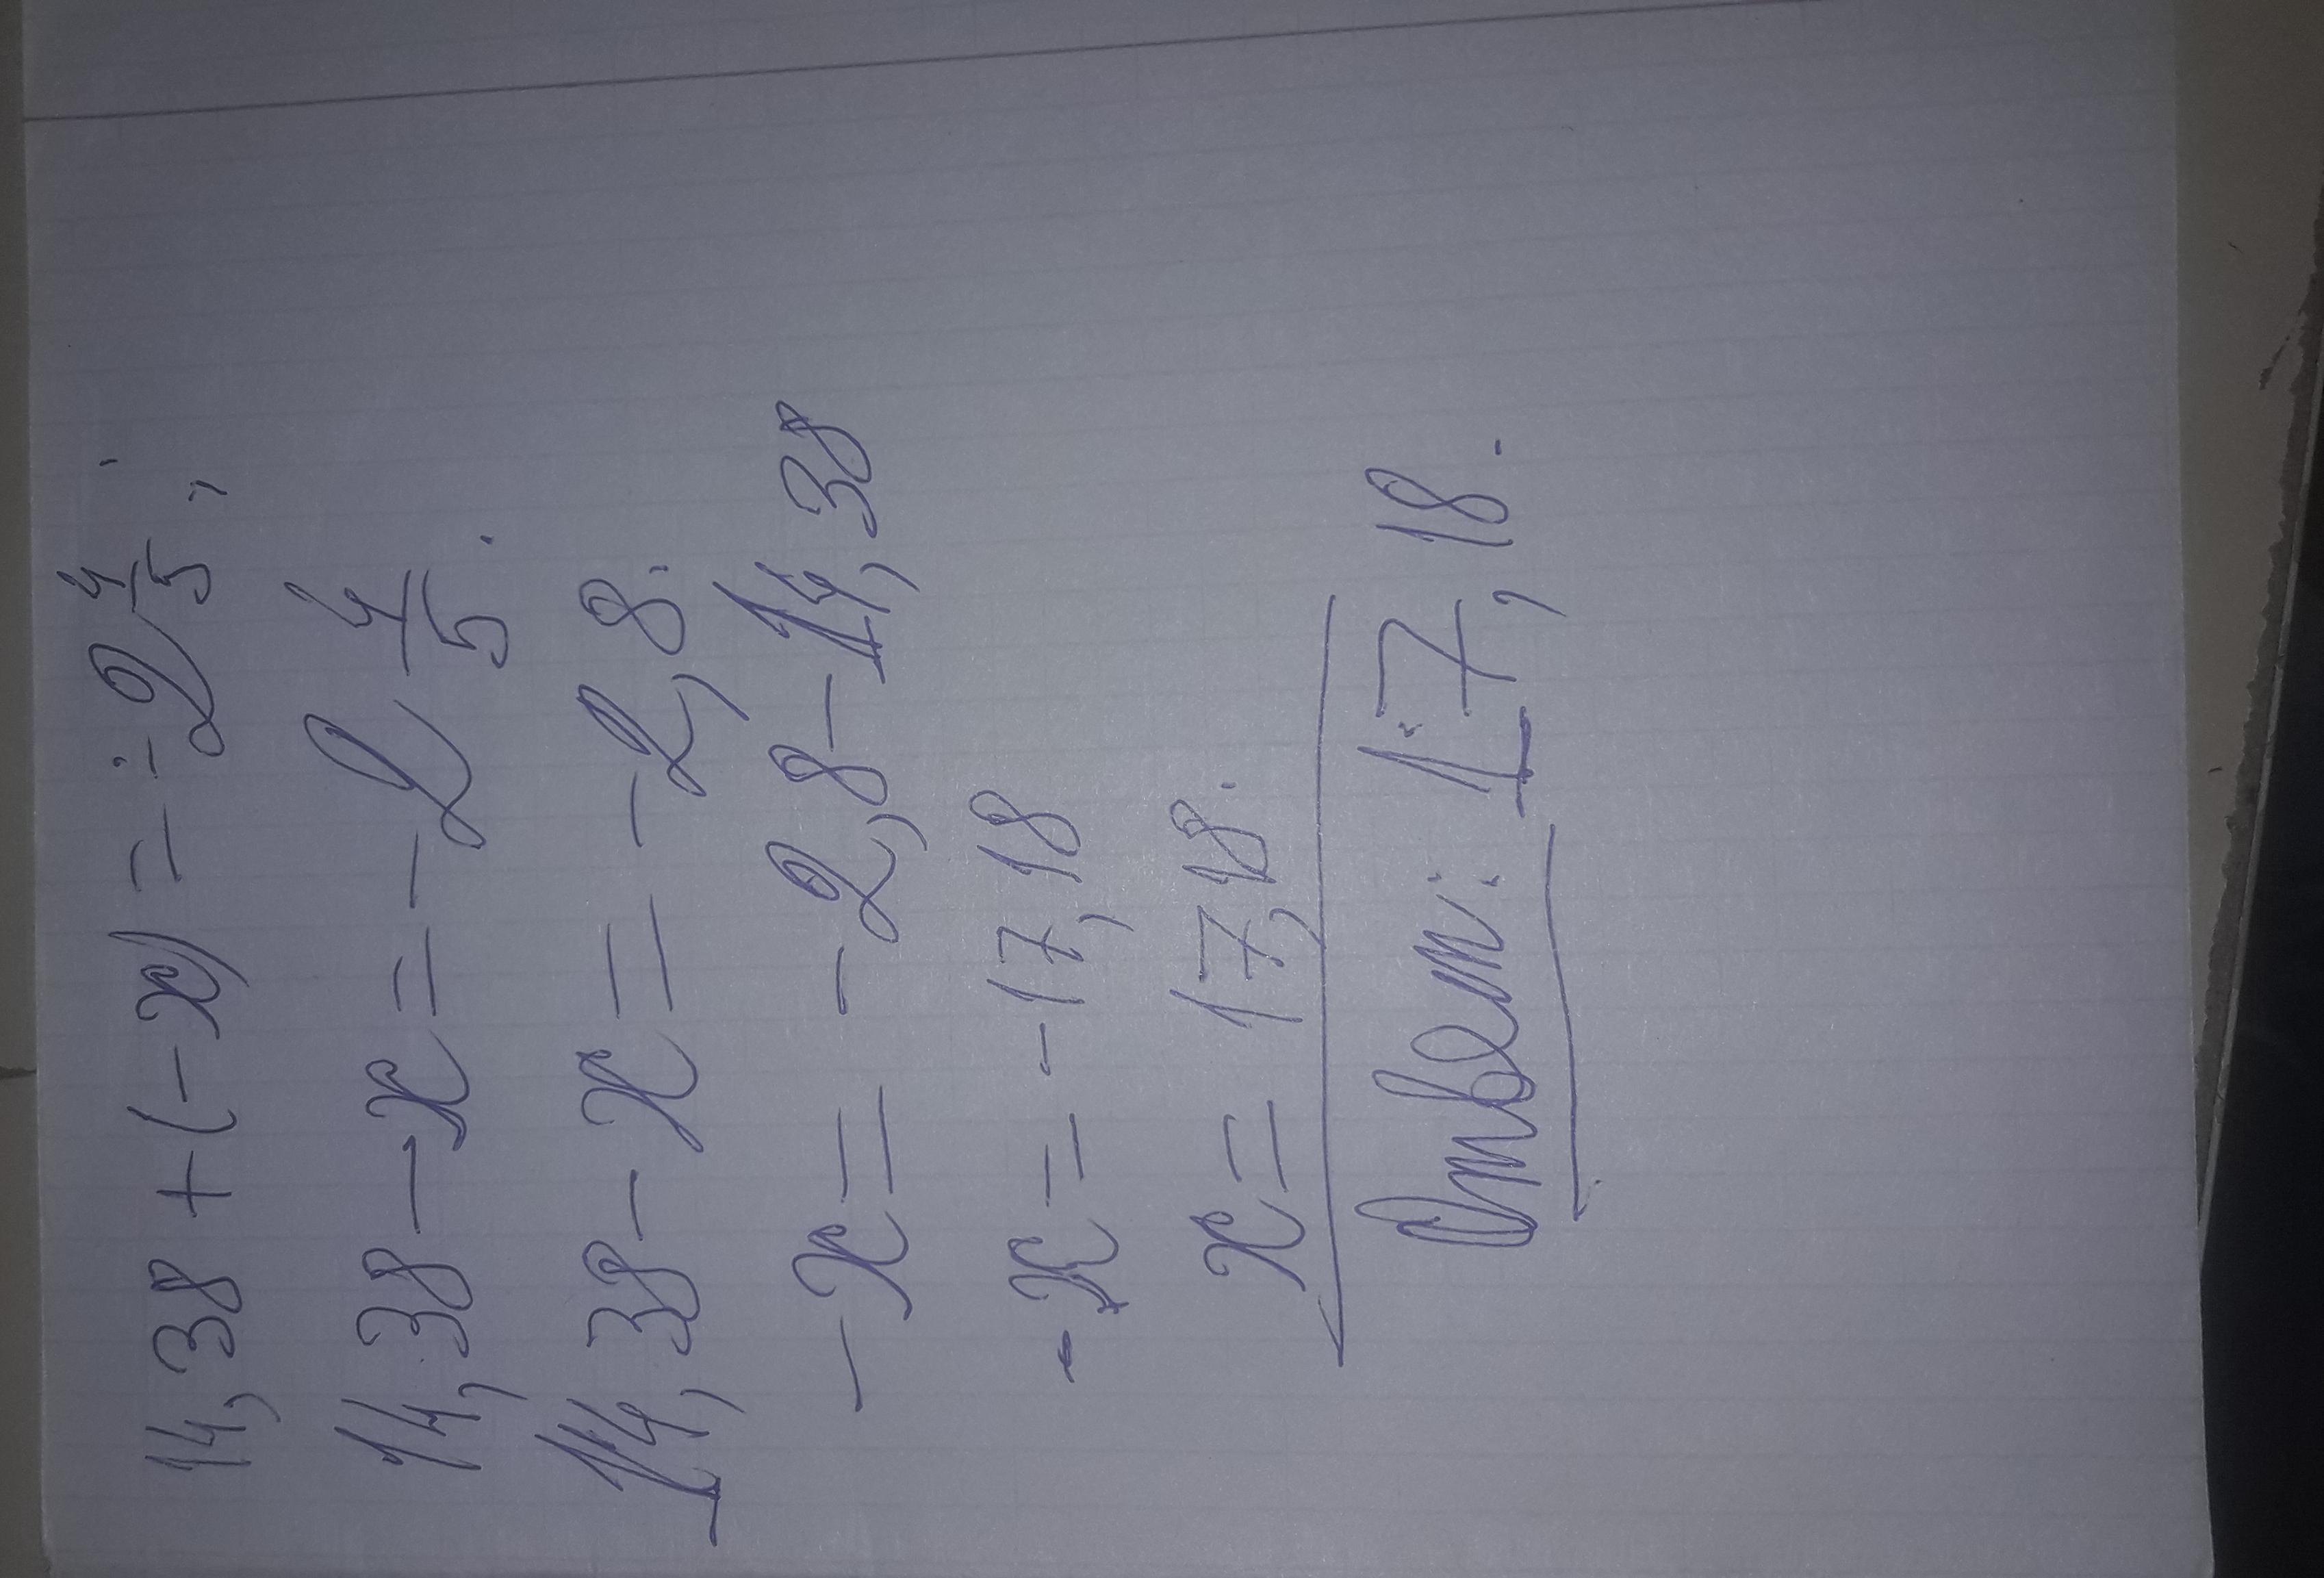 14,38 + (-x) = -2 4/5;
14,38 - x = -2 4/5.
14,38 - x = -2,8.
-x = -2,8 - 14,38
-x = -17,18
x = 17,18.
Ответ: 17,18.